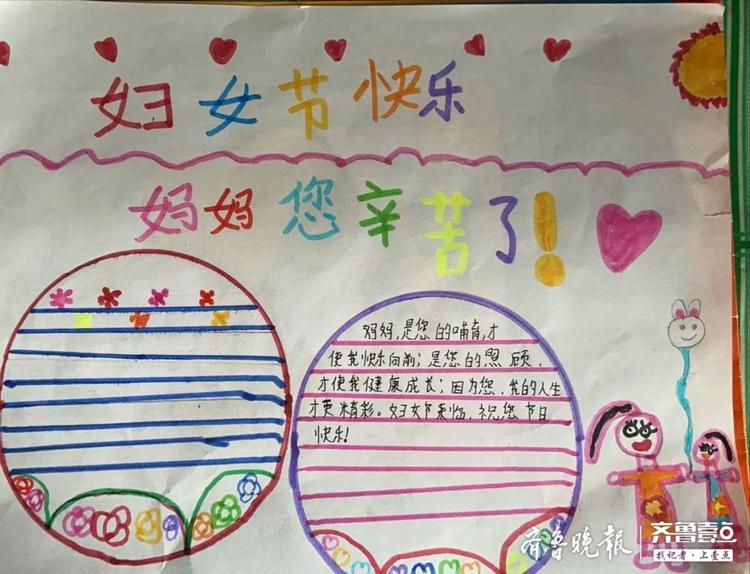 妇女节快乐
妈妈您辛苦了!
妈妈,是您的哺育,才
使我快乐向前;是您的照顾,
才使我健康成长;因为您,我的人生
才更精彩。妇女节来临,祝您节日
快乐!
齐鲁晚报
齐鲁壹点
找记者·上壹点